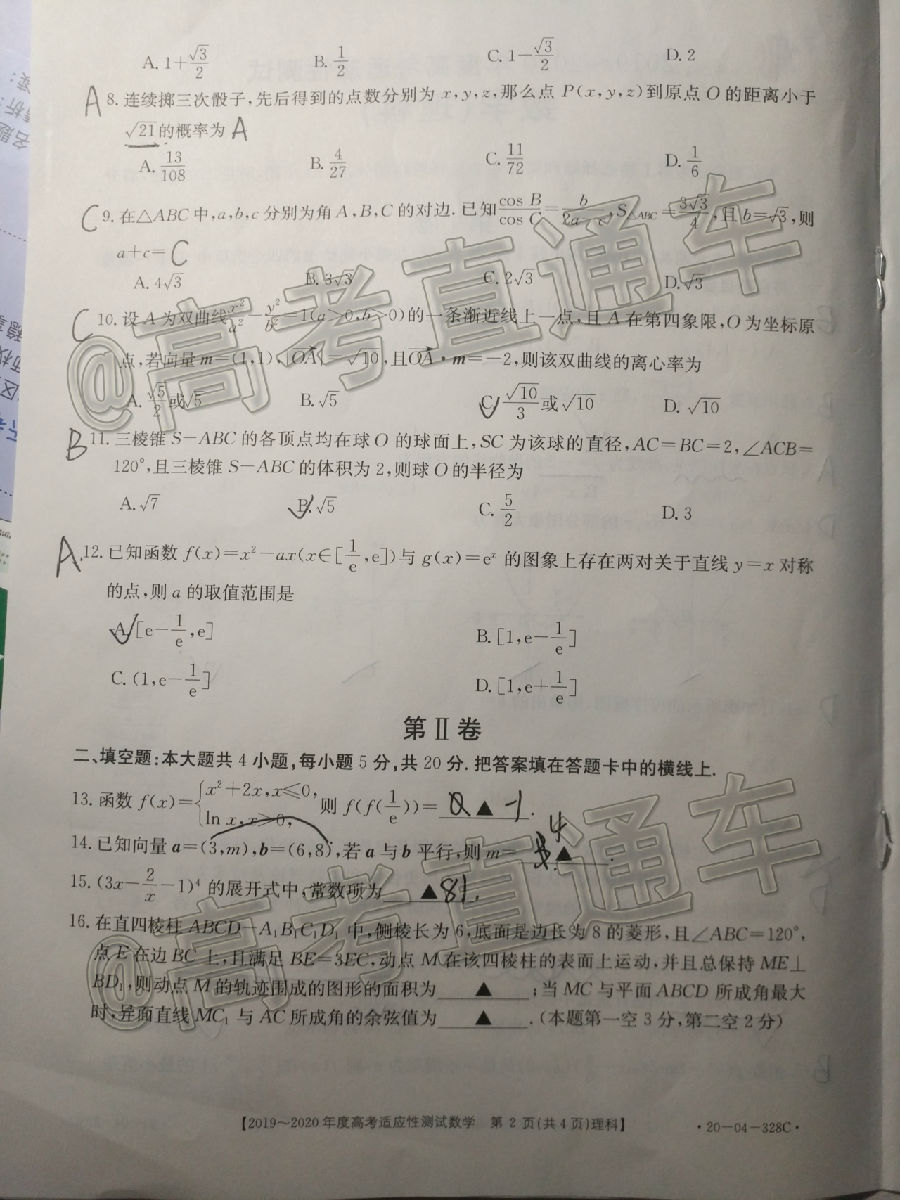 A. 1+√3/2 B. 1/2 C. 1-√3/2 D. 2
A 8. 连续掷三次骰子,先后得到的点数分别为 x,y,z,那么点 P(x,y,z)到原点 O 的距离小于
√21的概率为 A
A. 13/108 B. 4/27 C. 11/72 D. 1/6
C 9. 在△ABC 中,a,b,c 分别为角 A,B,C 的对边. 已知 cos B/cos C = b/2a-c, S△ABC = 3√3/4, 且 b=√3,则
a+c= C
A. 4√3 B. 3√3 C. 2√3 D. √3
C 10. 设 A 为双曲线 x²/a² - y²/b² =1(a>0,b>0)的一条渐近线上一点,且 A 在第四象限,O 为坐标原
点,若向量 m=(1,1),|OA|=√10,且OA·m=-2,则该双曲线的离心率为
A. √5/2 或√5 B. √5 C. √10/3 或√10 D. √10
B 11. 三棱锥 S-ABC 的各顶点均在球 O 的球面上,SC 为该球的直径,AC=BC=2,∠ACB=
120°,且三棱锥 S-ABC 的体积为 2,则球 O 的半径为
A. √7 B. √5 C. 5/2 D. 3
A 12. 已知函数 f(x)=x²-ax(x∈[1/e,e])与 g(x)=eˣ 的图象上存在两对关于直线 y=x 对称
的点,则 a 的取值范围是
A. [e-1/e,e] B. [1,e-1/e]
C. (1,e-1/e] D. [1,e+1/e]
第Ⅱ卷
二、填空题:本大题共 4 小题,每小题 5 分,共 20 分. 把答案填在答题卡中的横线上.
13. 函数 f(x)={x²+2x,x≤0, ln x,x>0, 则 f(f(1/e))= ▲ -1 .
14. 已知向量 a=(3,m),b=(6,8),若 a 与 b 平行,则 m= 4 ▲ .
15. (3x-2/x-1)⁴ 的展开式中,常数项为 ▲ 81 .
16. 在直四棱柱 ABCD-A₁B₁C₁D₁ 中,侧棱长为 6,底面是边长为 8 的菱形,且∠ABC=120°,
点 E 在边 BC 上,且满足 BE=3EC,动点 M 在该四棱柱的表面上运动,并且总保持 ME⊥
BD₁,则动点 M 的轨迹围成的图形的面积为 ▲ ;当 MC 与平面 ABCD 所成角最大
时,异面直线 MC₁ 与 AC 所成角的余弦值为 ▲ .(本题第一空 3 分,第二空 2 分)
【2019~2020 年度高考适应性测试数学 第 2 页(共 4 页)理科】 ·20-04-328C·
@高考直通车
@高考直通车